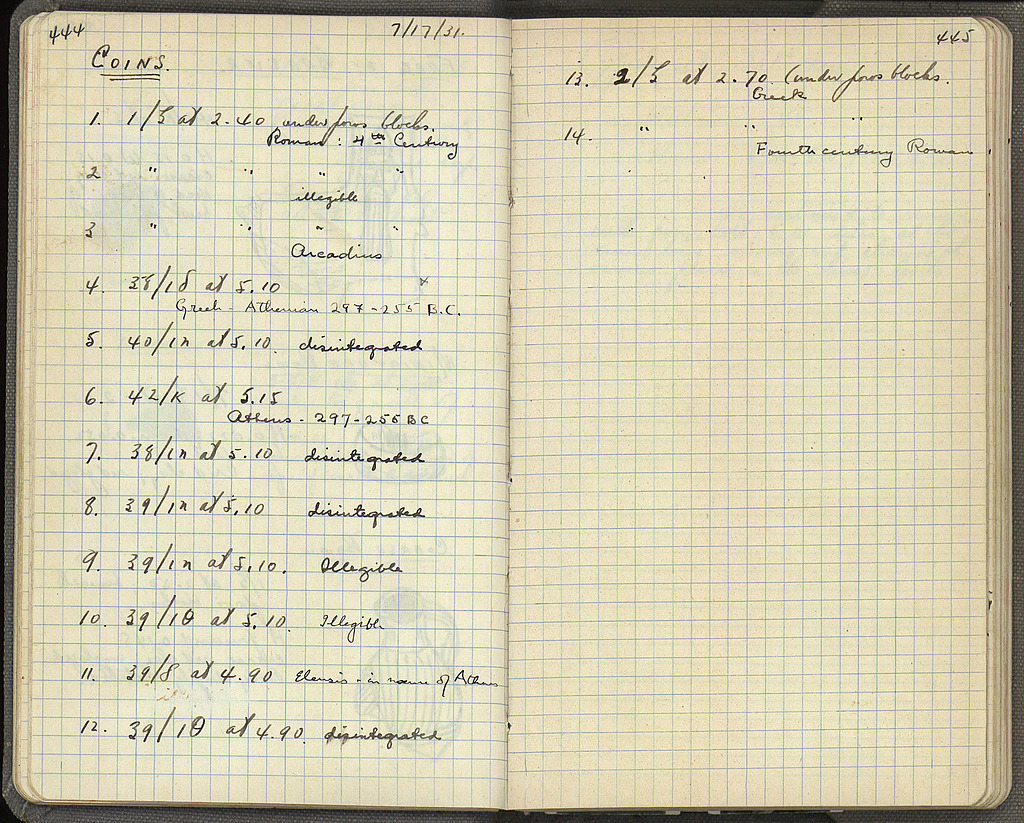 444
7/17/31.
COINS.
1. 1/ at 2.40 under poros blocks.
Roman : 4th Century
2 " " " "
illegible
3 " " " "
Arcadius
4. 38/ at 5.10 x
Greek - Athenian 297-255 B.C.
5. 40/ at 5.10. disintegrated
6. 42/K at 5.15
Athens - 297-255 BC
7. 38/ at 5.10 disintegrated
8. 39/ at 5.10 disintegrated
9. 39/ at 5.10. Illegible
10. 39/ΙΘ at 5.10. Illegible
11. 39/ at 4.90 Eleusis - in name of Athens
12. 39/ΙΘ at 4.90. disintegrated
445
13. 2/ at 2.70. (under poros blocks.
Greek
14. " " "
Fourth century Roman